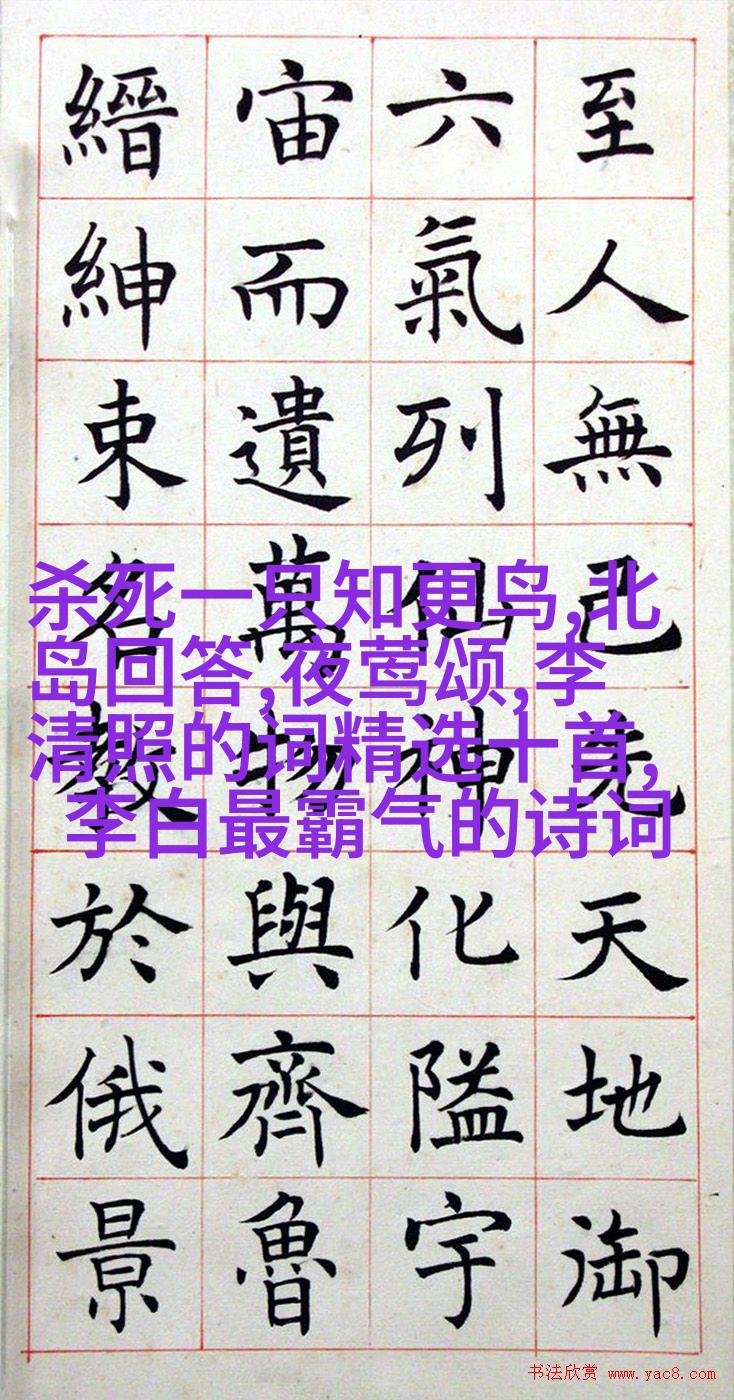 至人無己先天地御
六氣列仙神化隘宇
宙而遺萬物與齊魯
縉紳束名教於俄景
杀死一只知更鸟,北
岛回答,夜莺颂,李
清照的词精选十首,
李白最霸气的诗词
书法欣赏 www.yac8.com